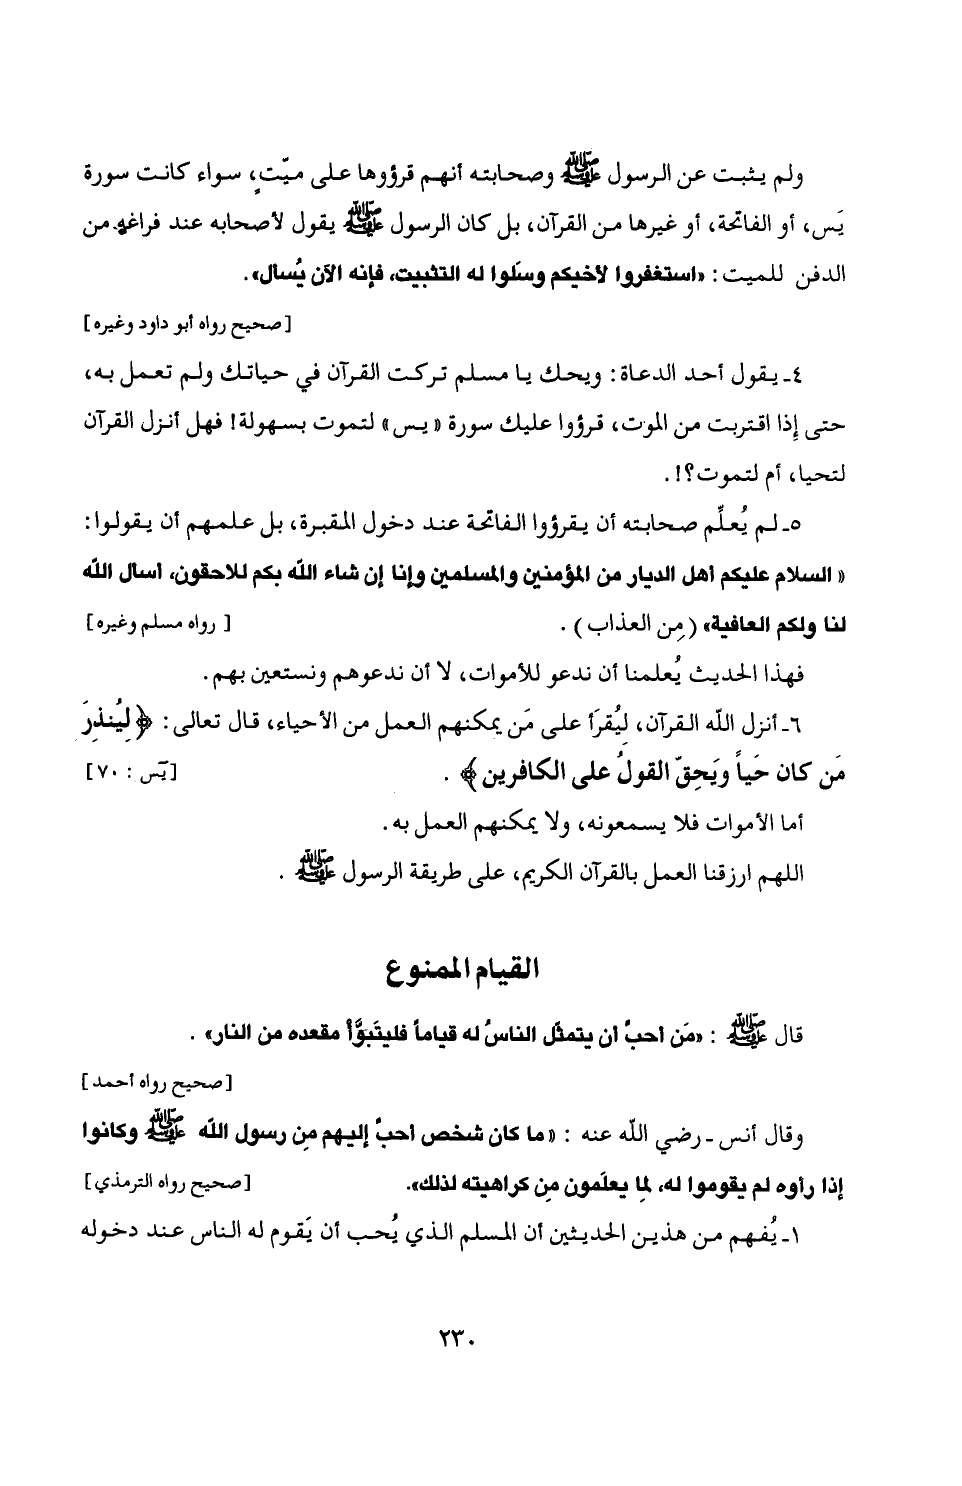 ولم يثبت عن الرسول ﷺ وصحابته أنهم قرؤوها على ميّتٍ، سواء كانت سورة
يَس، أو الفاتحة، أو غيرها من القرآن، بل كان الرسول ﷺ يقول لأصحابه عند فراغه من
الدفن للميت : «استغفروا لأخيكم وسَلوا له التثبيت، فإنه الآن يُسأل».
[صحيح رواه أبو داود وغيره]
٤ـ يقول أحد الدعاة : ويحك يا مسلم تركت القرآن في حياتك ولم تعمل به،
حتى إِذا اقتربت من الموت، قرؤوا عليك سورة «يس» لتموت بسهولة! فهل أنزل القرآن
لتحيا، أم لتموت؟!.
٥ـ لم يُعلِّم صحابته أن يقرؤوا الفاتحة عند دخول المقبرة، بل علمهم أن يقولوا :
«السلام عليكم أهل الديار من المؤمنين والمسلمين وإنا إن شاء الله بكم للاحقون، أسأل الله
لنا ولكم العافية» (مِن العذاب) . [رواه مسلم وغيره]
فهذا الحديث يُعلمنا أن ندعو للأموات، لا أن ندعوهم ونستعين بهم.
٦ـ أنزل الله القرآن، ليُقرَأ على مَن يمكنهم العمل مِن الأحياء، قال تعالى : ﴿لِيُنذِرَ
مَن كان حَياً ويَحِقّ القولُ على الكافرين﴾ . [يَس : ٧٠]
أما الأموات فلا يسمعونه، ولا يمكنهم العمل به.
اللهم ارزقنا العمل بالقرآن الكريم، على طريقة الرسول ﷺ .
القيام الممنوع
قال ﷺ : «مَن أحبَّ أن يتمثّل الناسُ له قياماً فليتَبوَّأ مقعده من النار» .
[صحيح رواه أحمد]
وقال أنس ـ رضي الله عنه : «ما كان شخص أحبَّ إليهم مِن رسول الله ﷺ وكانوا
إذا رأوه لم يقوموا له، لِما يعلَمون مِن كراهيته لذلك». [صحيح رواه الترمذي]
١ـ يُفهم من هذين الحديثين أن المسلم الذي يُحب أن يَقوم له الناس عند دخوله
٢٣٠